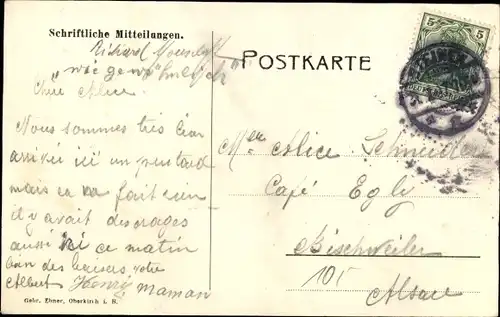 Schriftliche Mitteilungen.
POSTKARTE
5 5
Richard
"wie gewöhnlich"
Chère Alice
Nous sommes très bien
arrivés ici un peu tard
mais ça va fait rien
il y avait des orages
aussi ici ce matin
bien des baisers votre
Albert Henry maman
Mlle Alice Schneider
Café Egly
Bischweiler
105
Alsace
Gebr. Ebner, Oberkirch i. B.